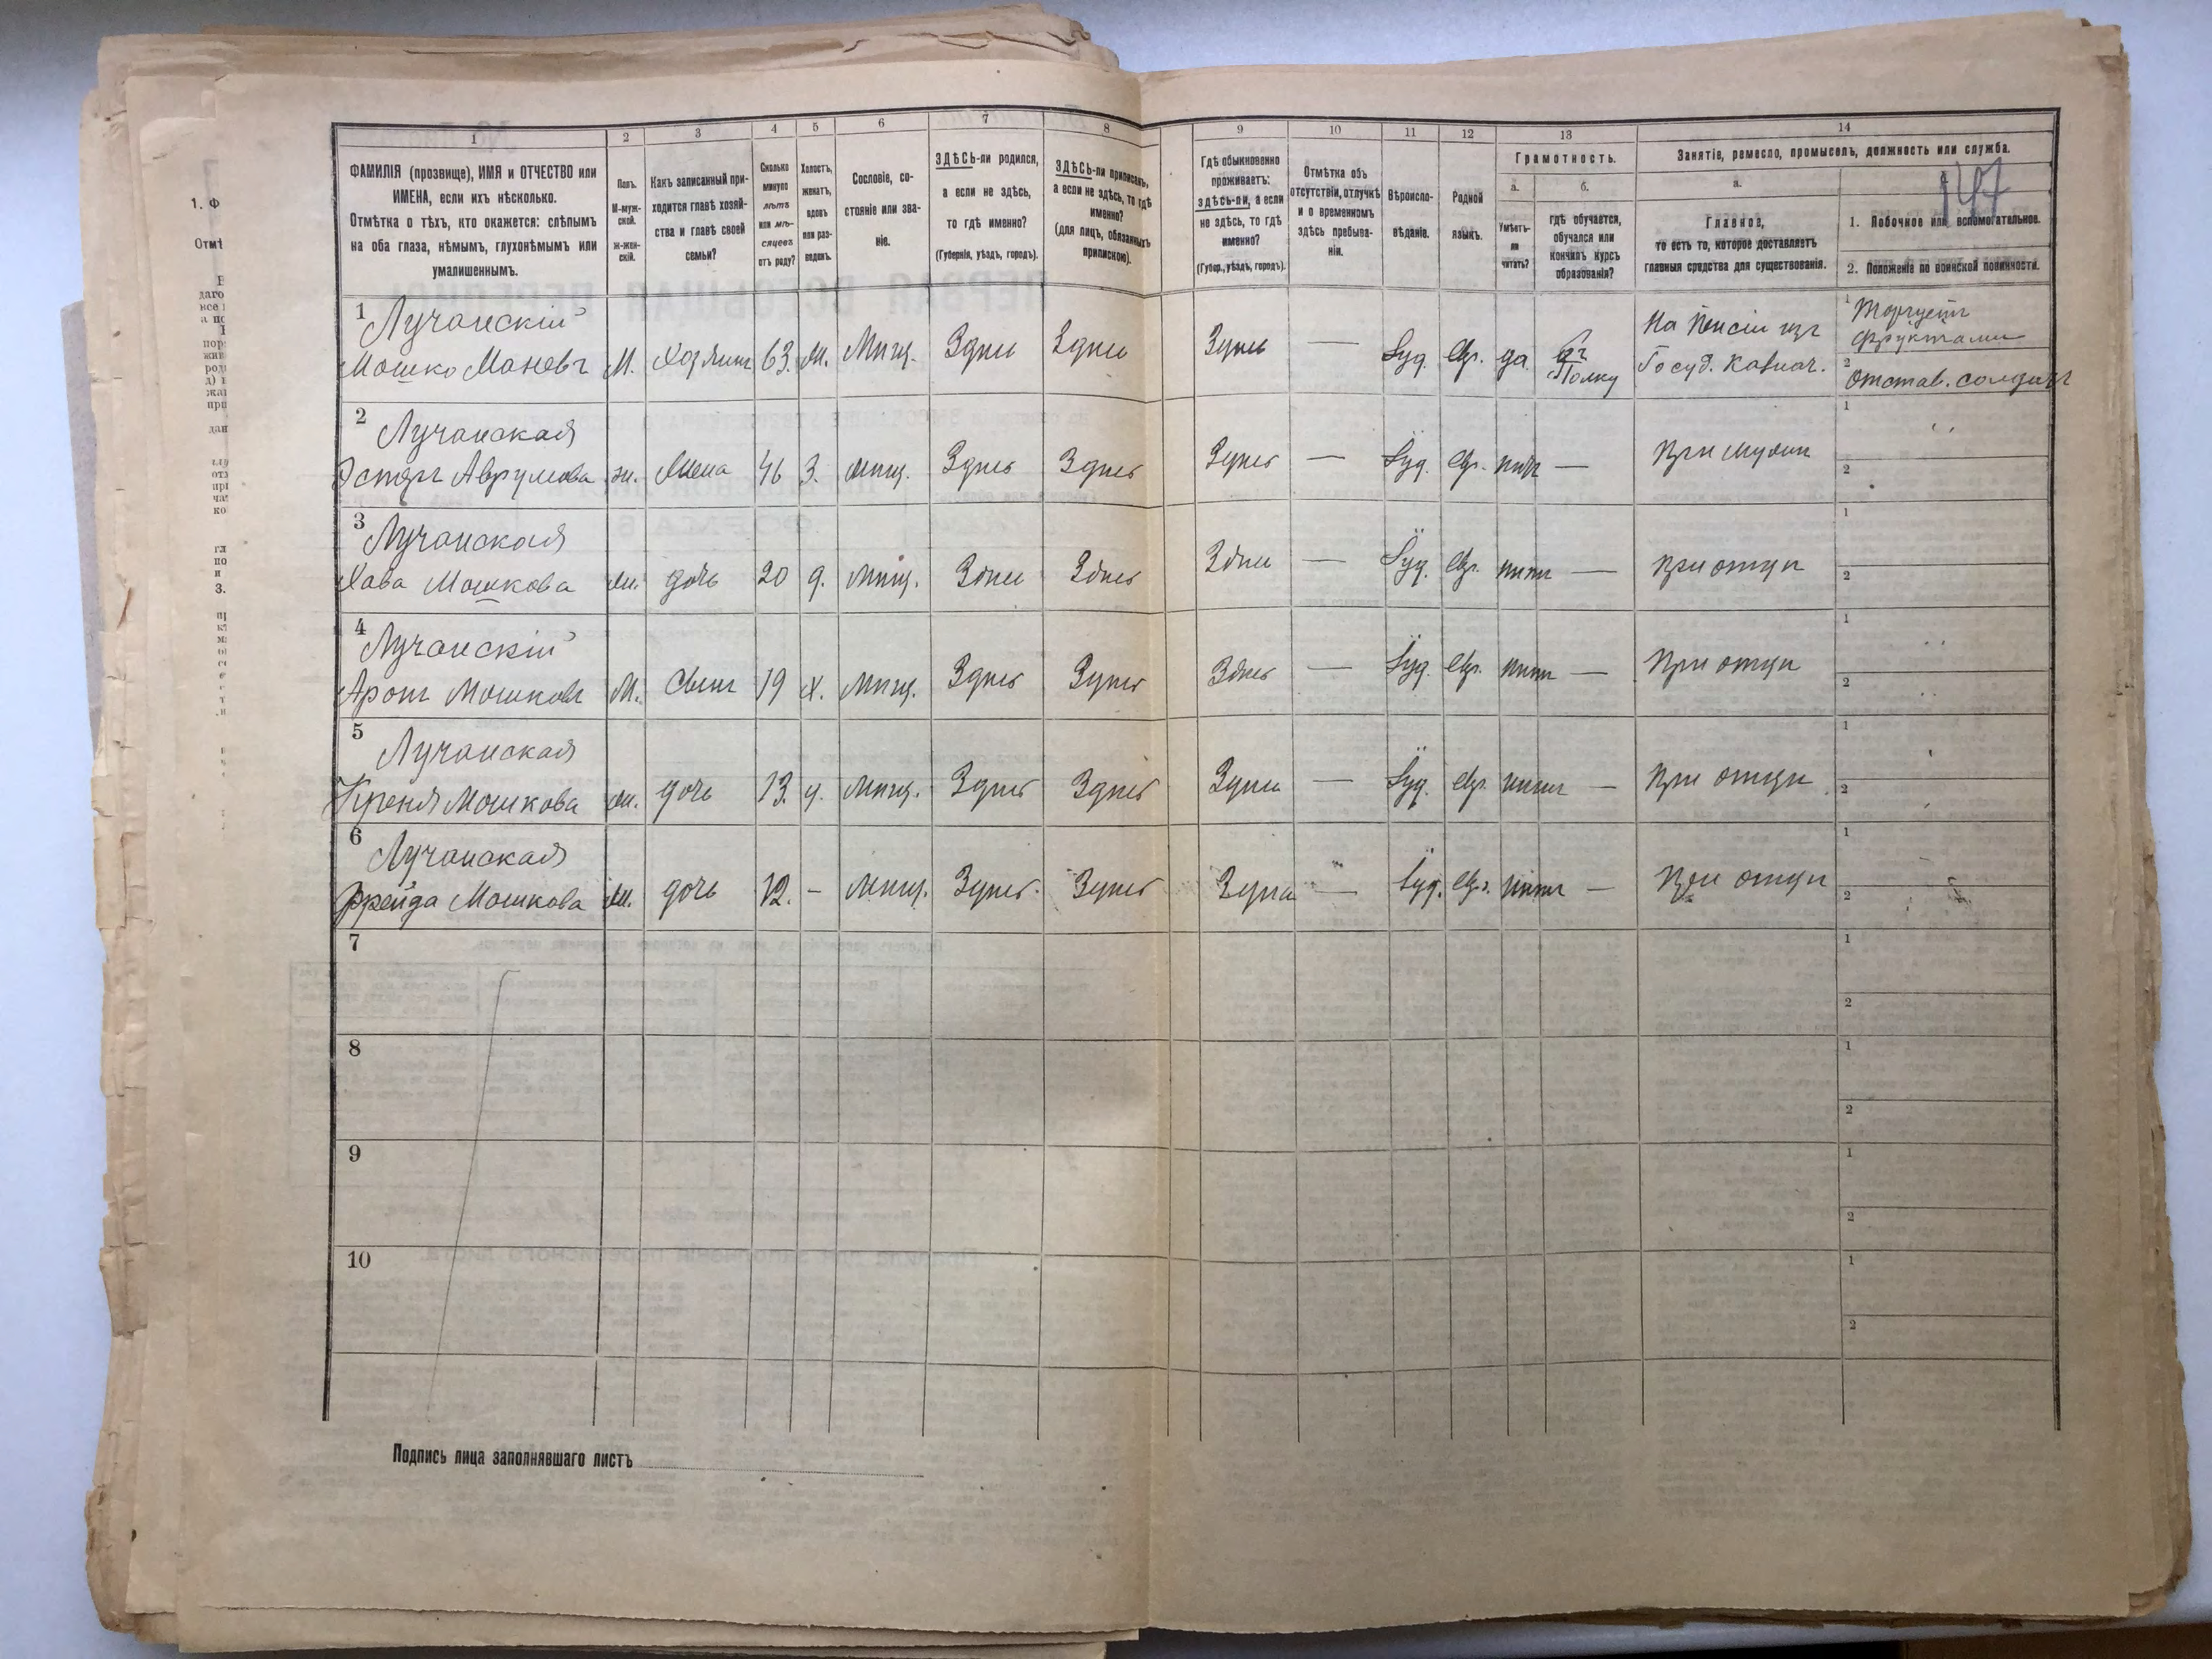 1 2 3 4 5 6 7 8 9 10 11 12 13 14
ФАМИЛІЯ (прозвище), ИМЯ и ОТЧЕСТВО или
ИМЕНА, если ихъ нѣсколько.
Отмѣтка о тѣхъ, кто окажется: слѣпымъ
на оба глаза, нѣмымъ, глухонѣмымъ или
умалишеннымъ.
Полъ.
М-муж-
ской.
Ж-жен-
скій.
Какъ записанный при-
ходится главѣ хозяй-
ства и главѣ своей
семьи?
Сколько
минуло
лѣтъ
или мѣ-
сяцевъ
отъ роду?
Холостъ,
женатъ,
вдовъ
или раз-
веденъ.
Сословіе, со-
стояніе или зва-
ніе.
ЗДѢСЬ-ли родился,
а если не здѣсь,
то гдѣ именно?
(Губернія, уѣздъ, городъ).
ЗДѢСЬ-ли приписанъ,
а если не здѣсь, то гдѣ
именно?
(для лицъ, обязанныхъ
припискою).
Гдѣ обыкновенно
проживаетъ:
здѣсь-ли, а если
не здѣсь, то гдѣ
именно?
(Губер., уѣздъ, городъ).
Отмѣтка объ
отсутствіи, отлучкѣ
и о временномъ
здѣсь пребыва-
ніи.
Вѣроиспо-
вѣданіе.
Родной
языкъ.
Грамотность.
а.
Умѣетъ-
ли
читать?
б.
гдѣ обучается,
обучался или
кончилъ курсъ
образованія?
Занятіе, ремесло, промыселъ, должность или служба.
а.
Главное,
то есть то, которое доставляетъ
главныя средства для существованія.
147
1. Побочное или вспомогательное.
2. Положеніе по воинской повинности.
1 Лучанскій
Мошко Маневъ М. Хозяинъ 63. Мѣщ. Здѣсь Здѣсь Здѣсь — Іуд. Евр. да Въ Полку На Пенсіи изъ Госуд. Казнач.
1 Торгуетъ фруктами
2 Отстав. солдатъ
2 Лучанская
Эстеръ Аврумова ж. Жена 46 З. Мѣщ. Здѣсь Здѣсь Здѣсь — Іуд. Евр. нѣтъ — При мужѣ
1
2
3 Лучанская
Хава Мошкова ж. дочь 20 д. Мѣщ. Здѣсь Здѣсь Здѣсь — Іуд. Евр. нѣтъ — При отцѣ
1
2
4 Лучанскій
Аронъ Мошковъ М. Сынъ 19 х. Мѣщ. Здѣсь Здѣсь Здѣсь — Іуд. Евр. нѣтъ — При отцѣ
1
2
5 Лучанская
Мошкова ж. дочь 13. д. Мѣщ. Здѣсь Здѣсь Здѣсь — Іуд. Евр. нѣтъ — При отцѣ
1
2
6 Лучанская
Фрейда Мошкова ж. дочь 12. — Мѣщ. Здѣсь Здѣсь Здѣсь — Іуд. Евр. нѣтъ — При отцѣ
1
2
7
1
2
8
1
2
9
1
2
10
1
2
Подпись лица заполнявшаго листъ